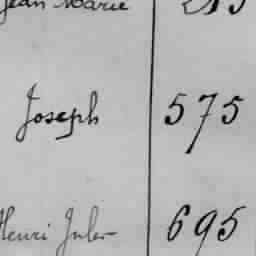 Jean Marie
Joseph 575
Henri Jules 695